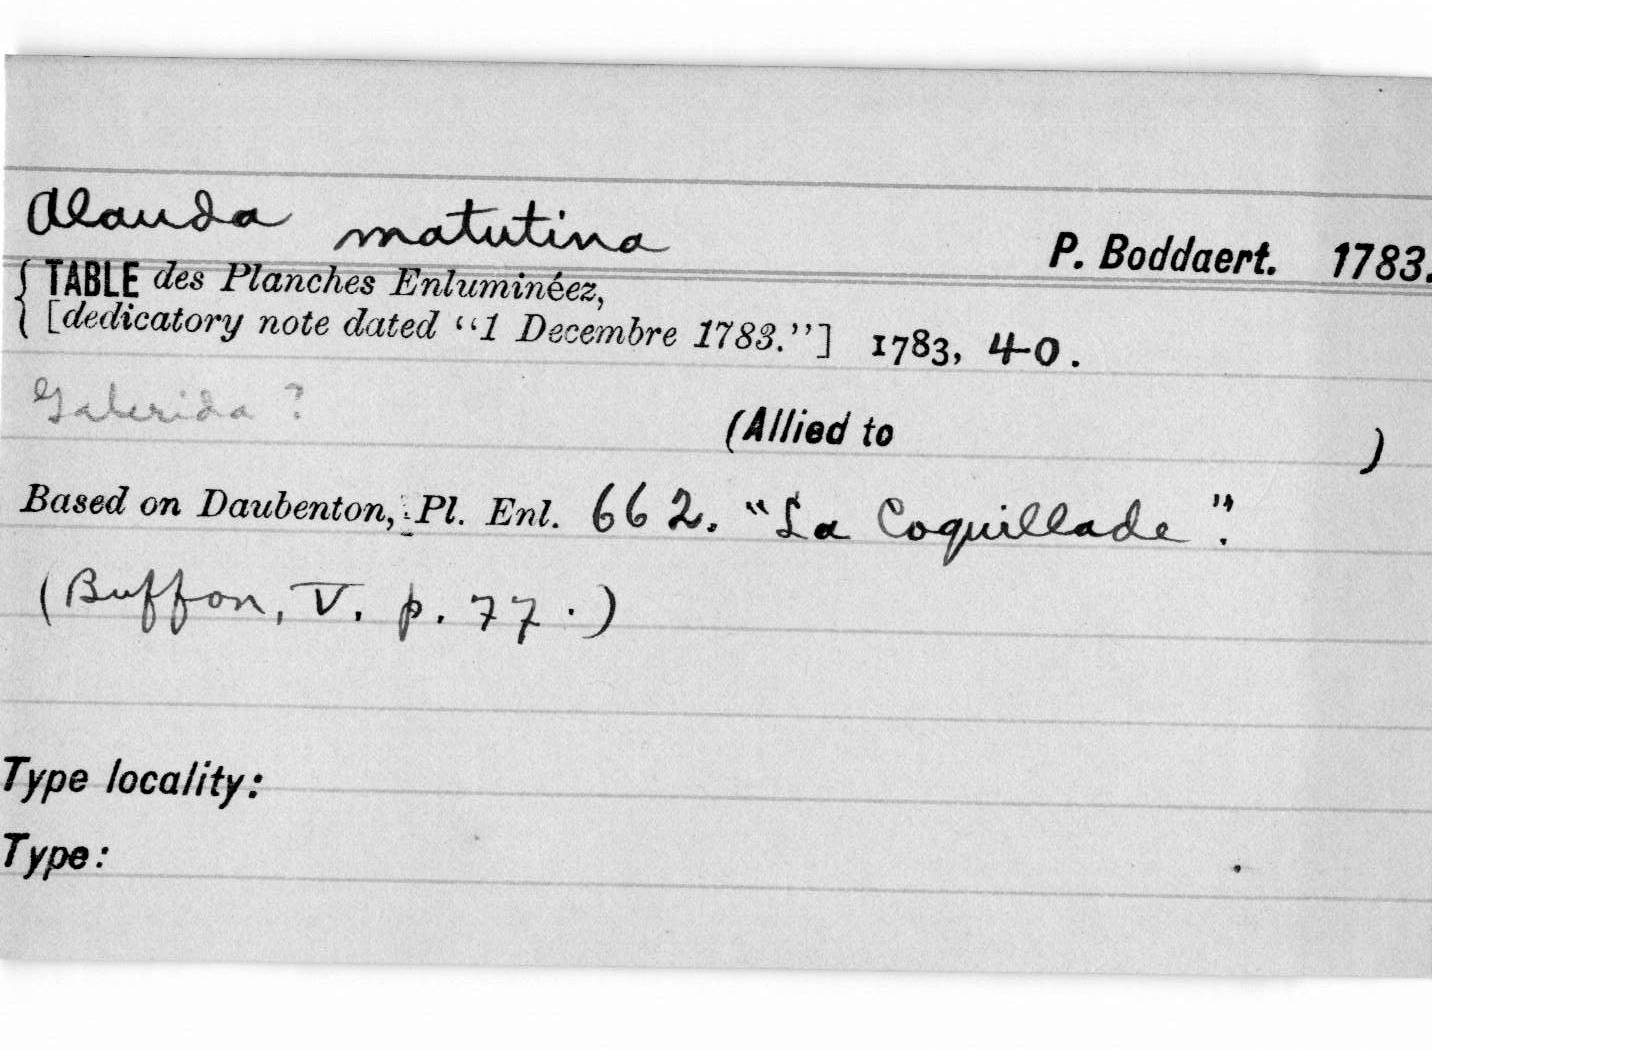 Alauda matutina P. Boddaert. 1783.
{ TABLE des Planches Enluminéez,
[dedicatory note dated “1 Decembre 1783.”] 1783, 40.
Galerida ?
(Allied to )
Based on Daubenton, Pl. Enl. 662. “La Coquillade”.
(Buffon, V. p. 77.)
Type locality:
Type: